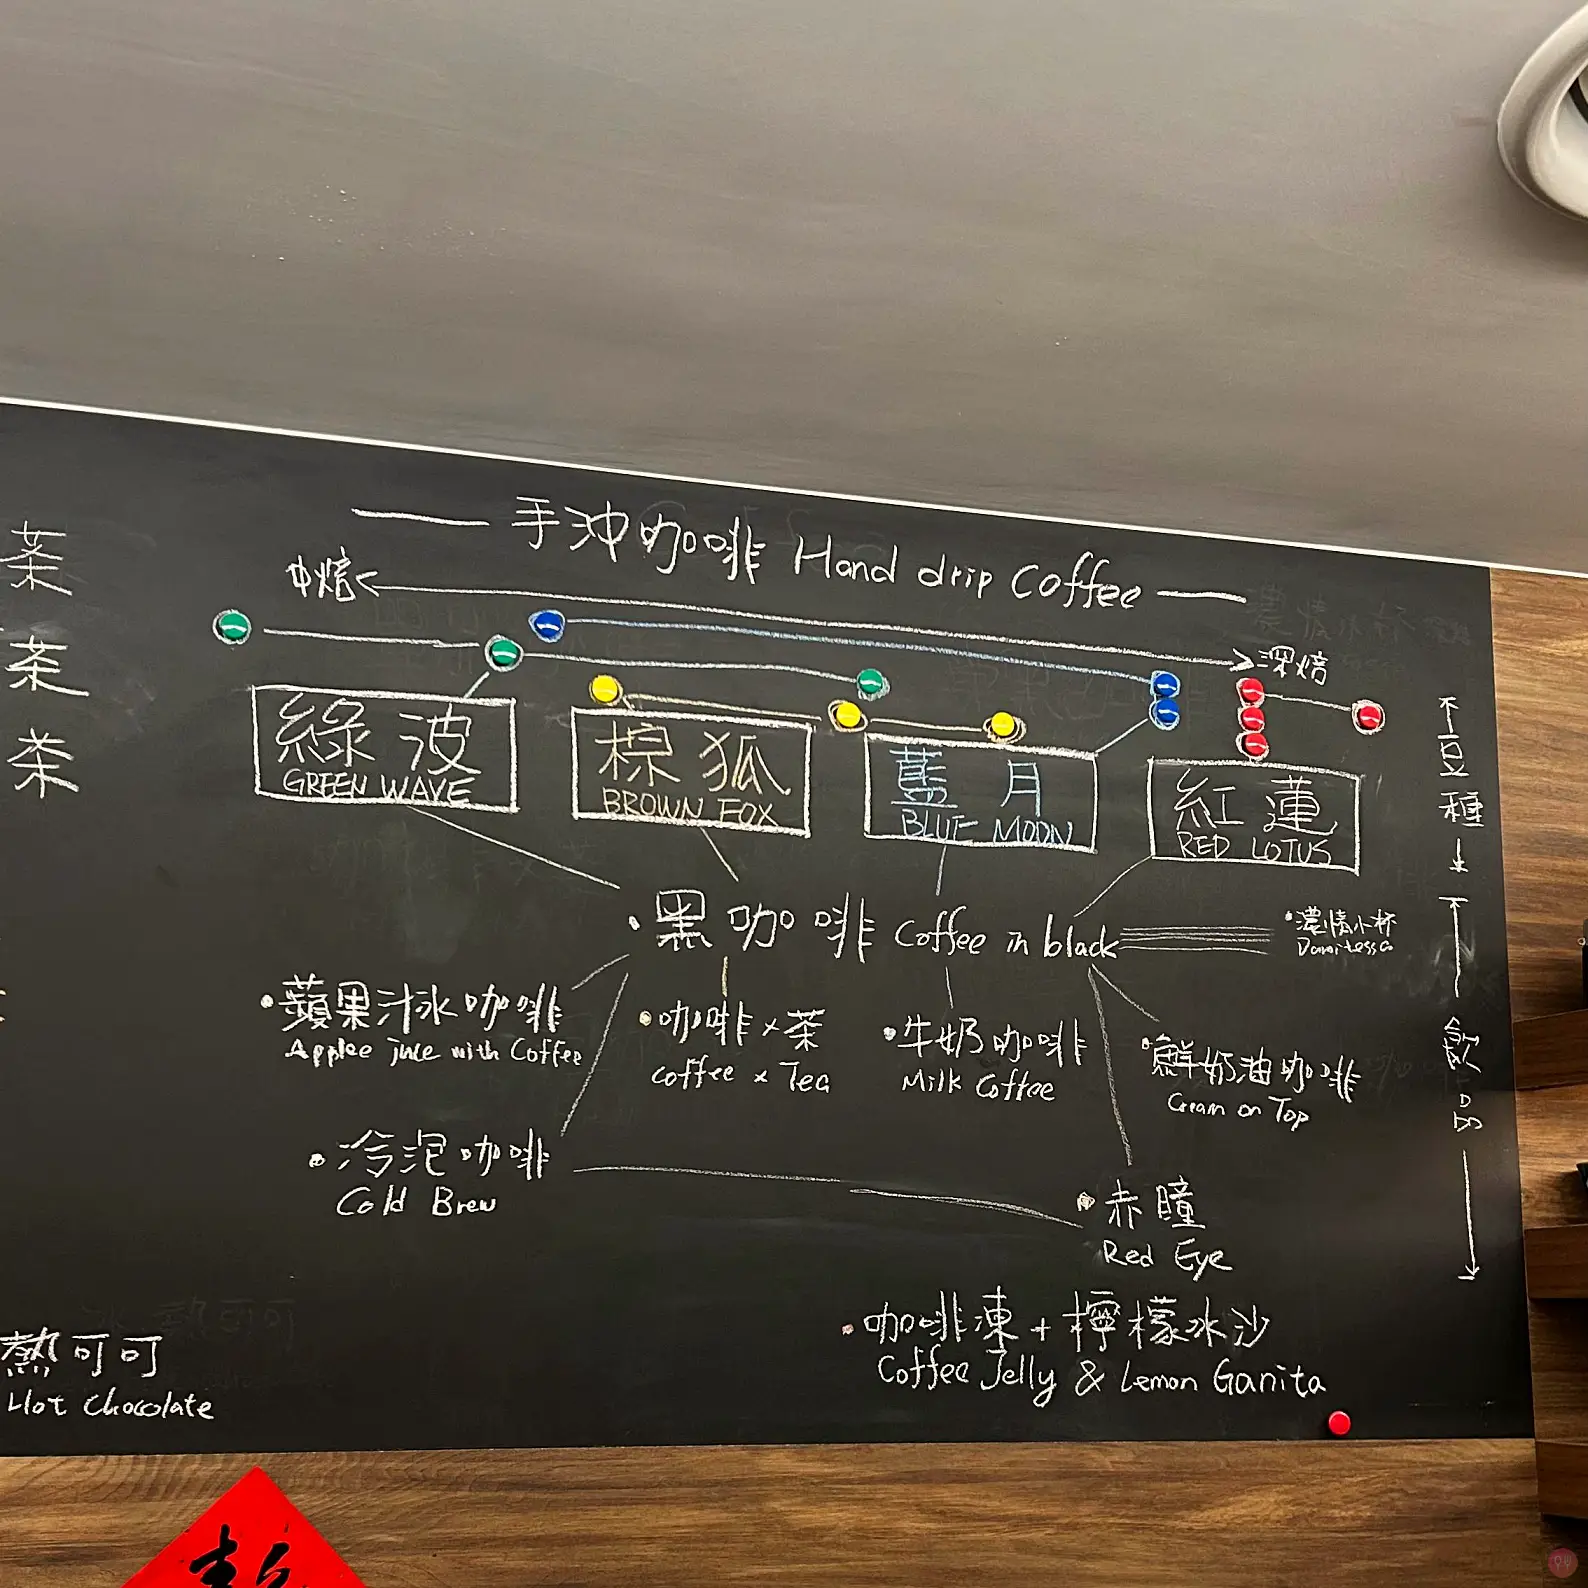 手沖咖啡 Hand drip Coffee
中焙
深焙
綠波
GREEN WAVE
棕狐
BROWN FOX
藍月
BLUE MOON
紅蓮
RED LOTUS
豆種
黑咖啡 Coffee in black
濃情小杯
飲品
蘋果汁冰咖啡
Applee juce with Coffee
咖啡×茶
Coffee × Tea
牛奶咖啡
Milk Coffee
鮮奶油咖啡
Cream on Top
冷泡咖啡
Cold Brew
赤瞳
Red Eye
咖啡凍+檸檬冰沙
Coffee Jelly & Lemon Ganita
茶
茶
茶
熱可可
Hot Chocolate